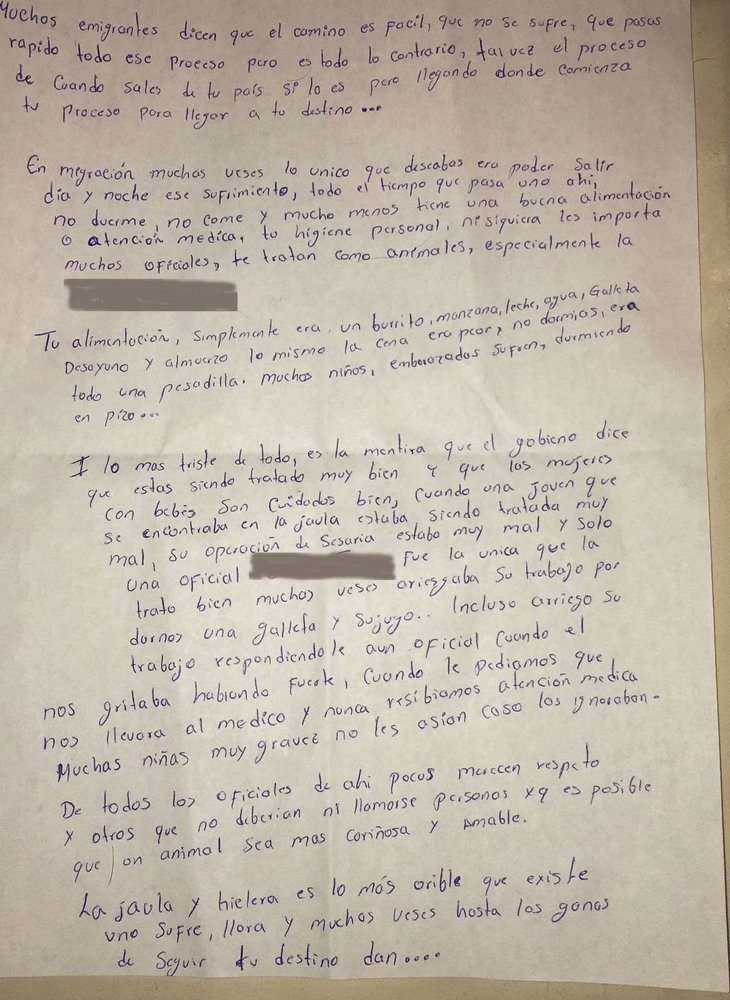 Muchos emigrantes dicen que el camino es facil, que no se sufre, que pasas
rapido todo ese proceso pero es todo lo contrario, tal vez el proceso
de cuando sales de tu país si lo es pero llegando donde comienza
tu proceso para llegar a tu destino...
En migración muchos veses lo unico que deseabas era poder salir
día y noche ese sufrimiento, todo el tiempo que pasa uno ahi,
no duerme, no come y mucho menos tiene una buena alimentación
o atención medica, tu higiene personal, ni siquiera les importa
muchos oficiales, te tratan como animales, especialmente la
Tu alimentación, simplemente era un burrito, manzana, leche, agua, Galleta
Desayuno y almuerzo lo mismo la cena era peor, no dormias, era
todo una pesadilla. muchos niños, embarazadas sufren, durmiendo
en pizo...
I lo mas triste de todo, es la mentira que el gobieno dice
que estas siendo tratado muy bien y que las mujeres
con bebés son cuidados bien, cuando una joven que
se encontraba en la jaula estaba siendo tratada muy
mal, su operación de Sesaria estaba muy mal y solo
una oficial fue la unica que la
trato bien muchas veses ariezgaba su trabajo por
darnos una galleta y su jugo.. Incluso arriego su
trabajo respondiendole a un oficial cuando el
nos gritaba hablando fuerte, cuando le pediamos que
nos llevara al medico y nunca resibiamos atención medica
Muchas niñas muy gravez no les asian caso los ignoraban-
De todos los oficiales de ahi pocos merecen respeto
y otros que no deberian ni llamarse personas xq es posible
que un animal sea mas cariñosa y amable.
La jaula y hielera es lo más orible que existe
uno sufre, llora y muchos veses hasta las ganas
de seguir tu destino dan....